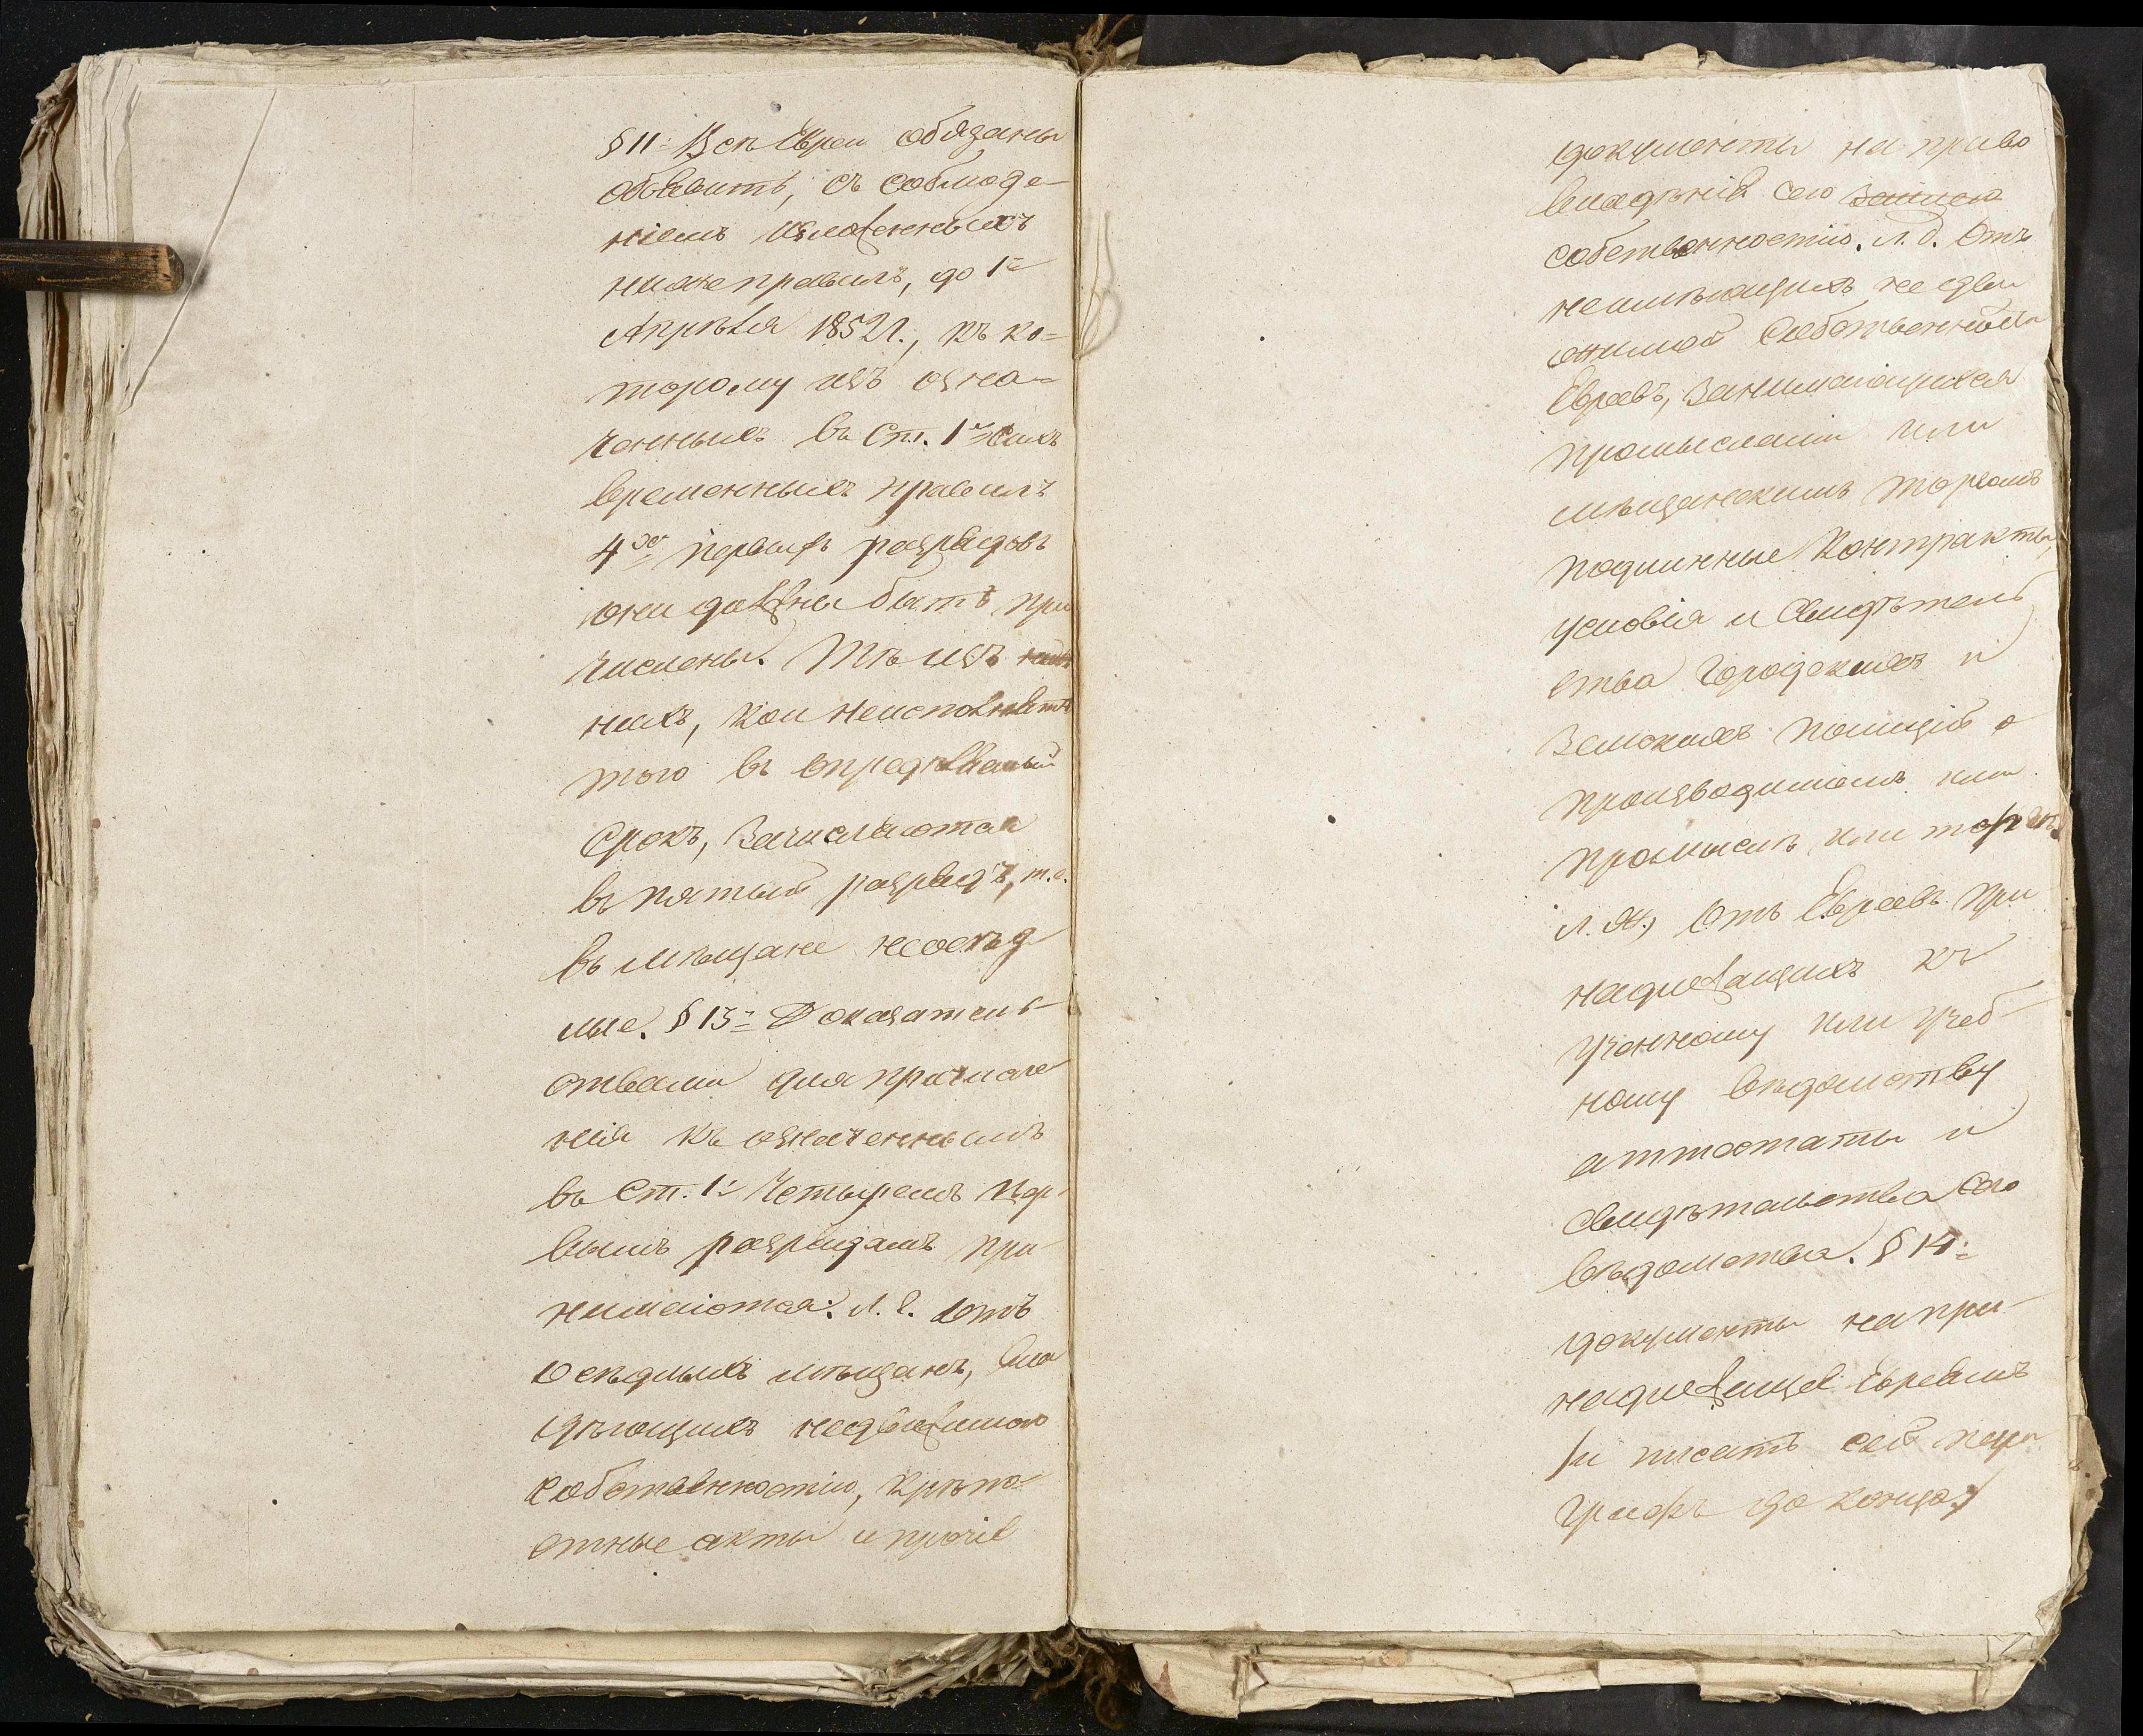 § 11= Всѣ Евреи обязаны
объявить, съ соблюде-
ніемъ изложенныхъ
ниже правилъ, до 1=
Апрѣля 1852 г., къ ко=
торому изъ озна=
ченныхъ въ Ст. 1й сихъ
временныхъ правилъ
4хъ первыхъ разрядовъ
они должны быть при
числены. Тѣ изъ
нихъ, кои неисполнятъ
того въ опредѣленный
срокъ, зачисляются
въ пятый разрядъ, т. е.
въ мѣщане неосѣд-
лые. § 13= Доказатель-
ствами для причисле-
нія къ означеннымъ
въ Ст. 1й четыремъ пер-
вымъ разрядамъ при-
нимаются: Л. г. Отъ
осѣдлыхъ мѣщанъ, вла
дѣющихъ недвижимою
собственностію, крѣпо-
стные акты и прочіе
документы на право
владѣнія сею
собственностію. Л. д. Отъ
неимѣющихъ недви
жимой собственности
Евреевъ, занимающихся
промыслами или
мѣщанскимъ торгомъ
подлинные контракты,
условія и свидѣтель
ства Городскихъ и
Земскихъ полицій о
производимомъ ими
промыслѣ или торгѣ.
Л. ж, Отъ Евреевъ при
надлежащихъ къ
ученному или учеб-
ному вѣдомству
аттестаты и
свидѣтельства сего
вѣдомства. § 14=
документы на при-
надлежащее Евреямъ
/и писать сей пара
графъ до конца:/